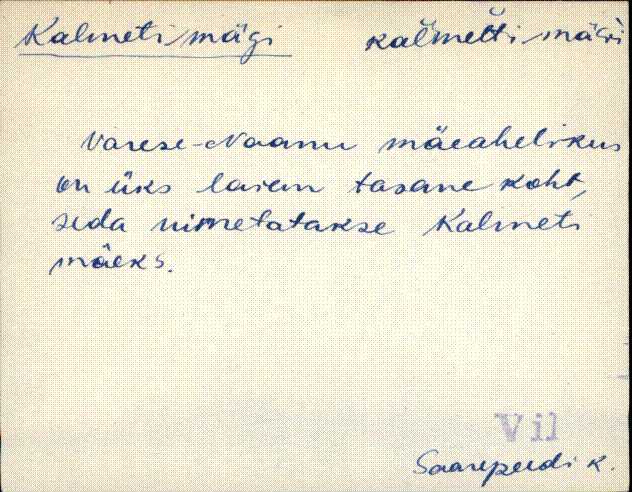 Kalmeti mägi kalmetti mäɢi
Varese-Naanu mäeahelikus
on üks laiem tasane koht,
seda nimetatakse Kalmeti
mäeks.
Vil
Saarepeedi k.